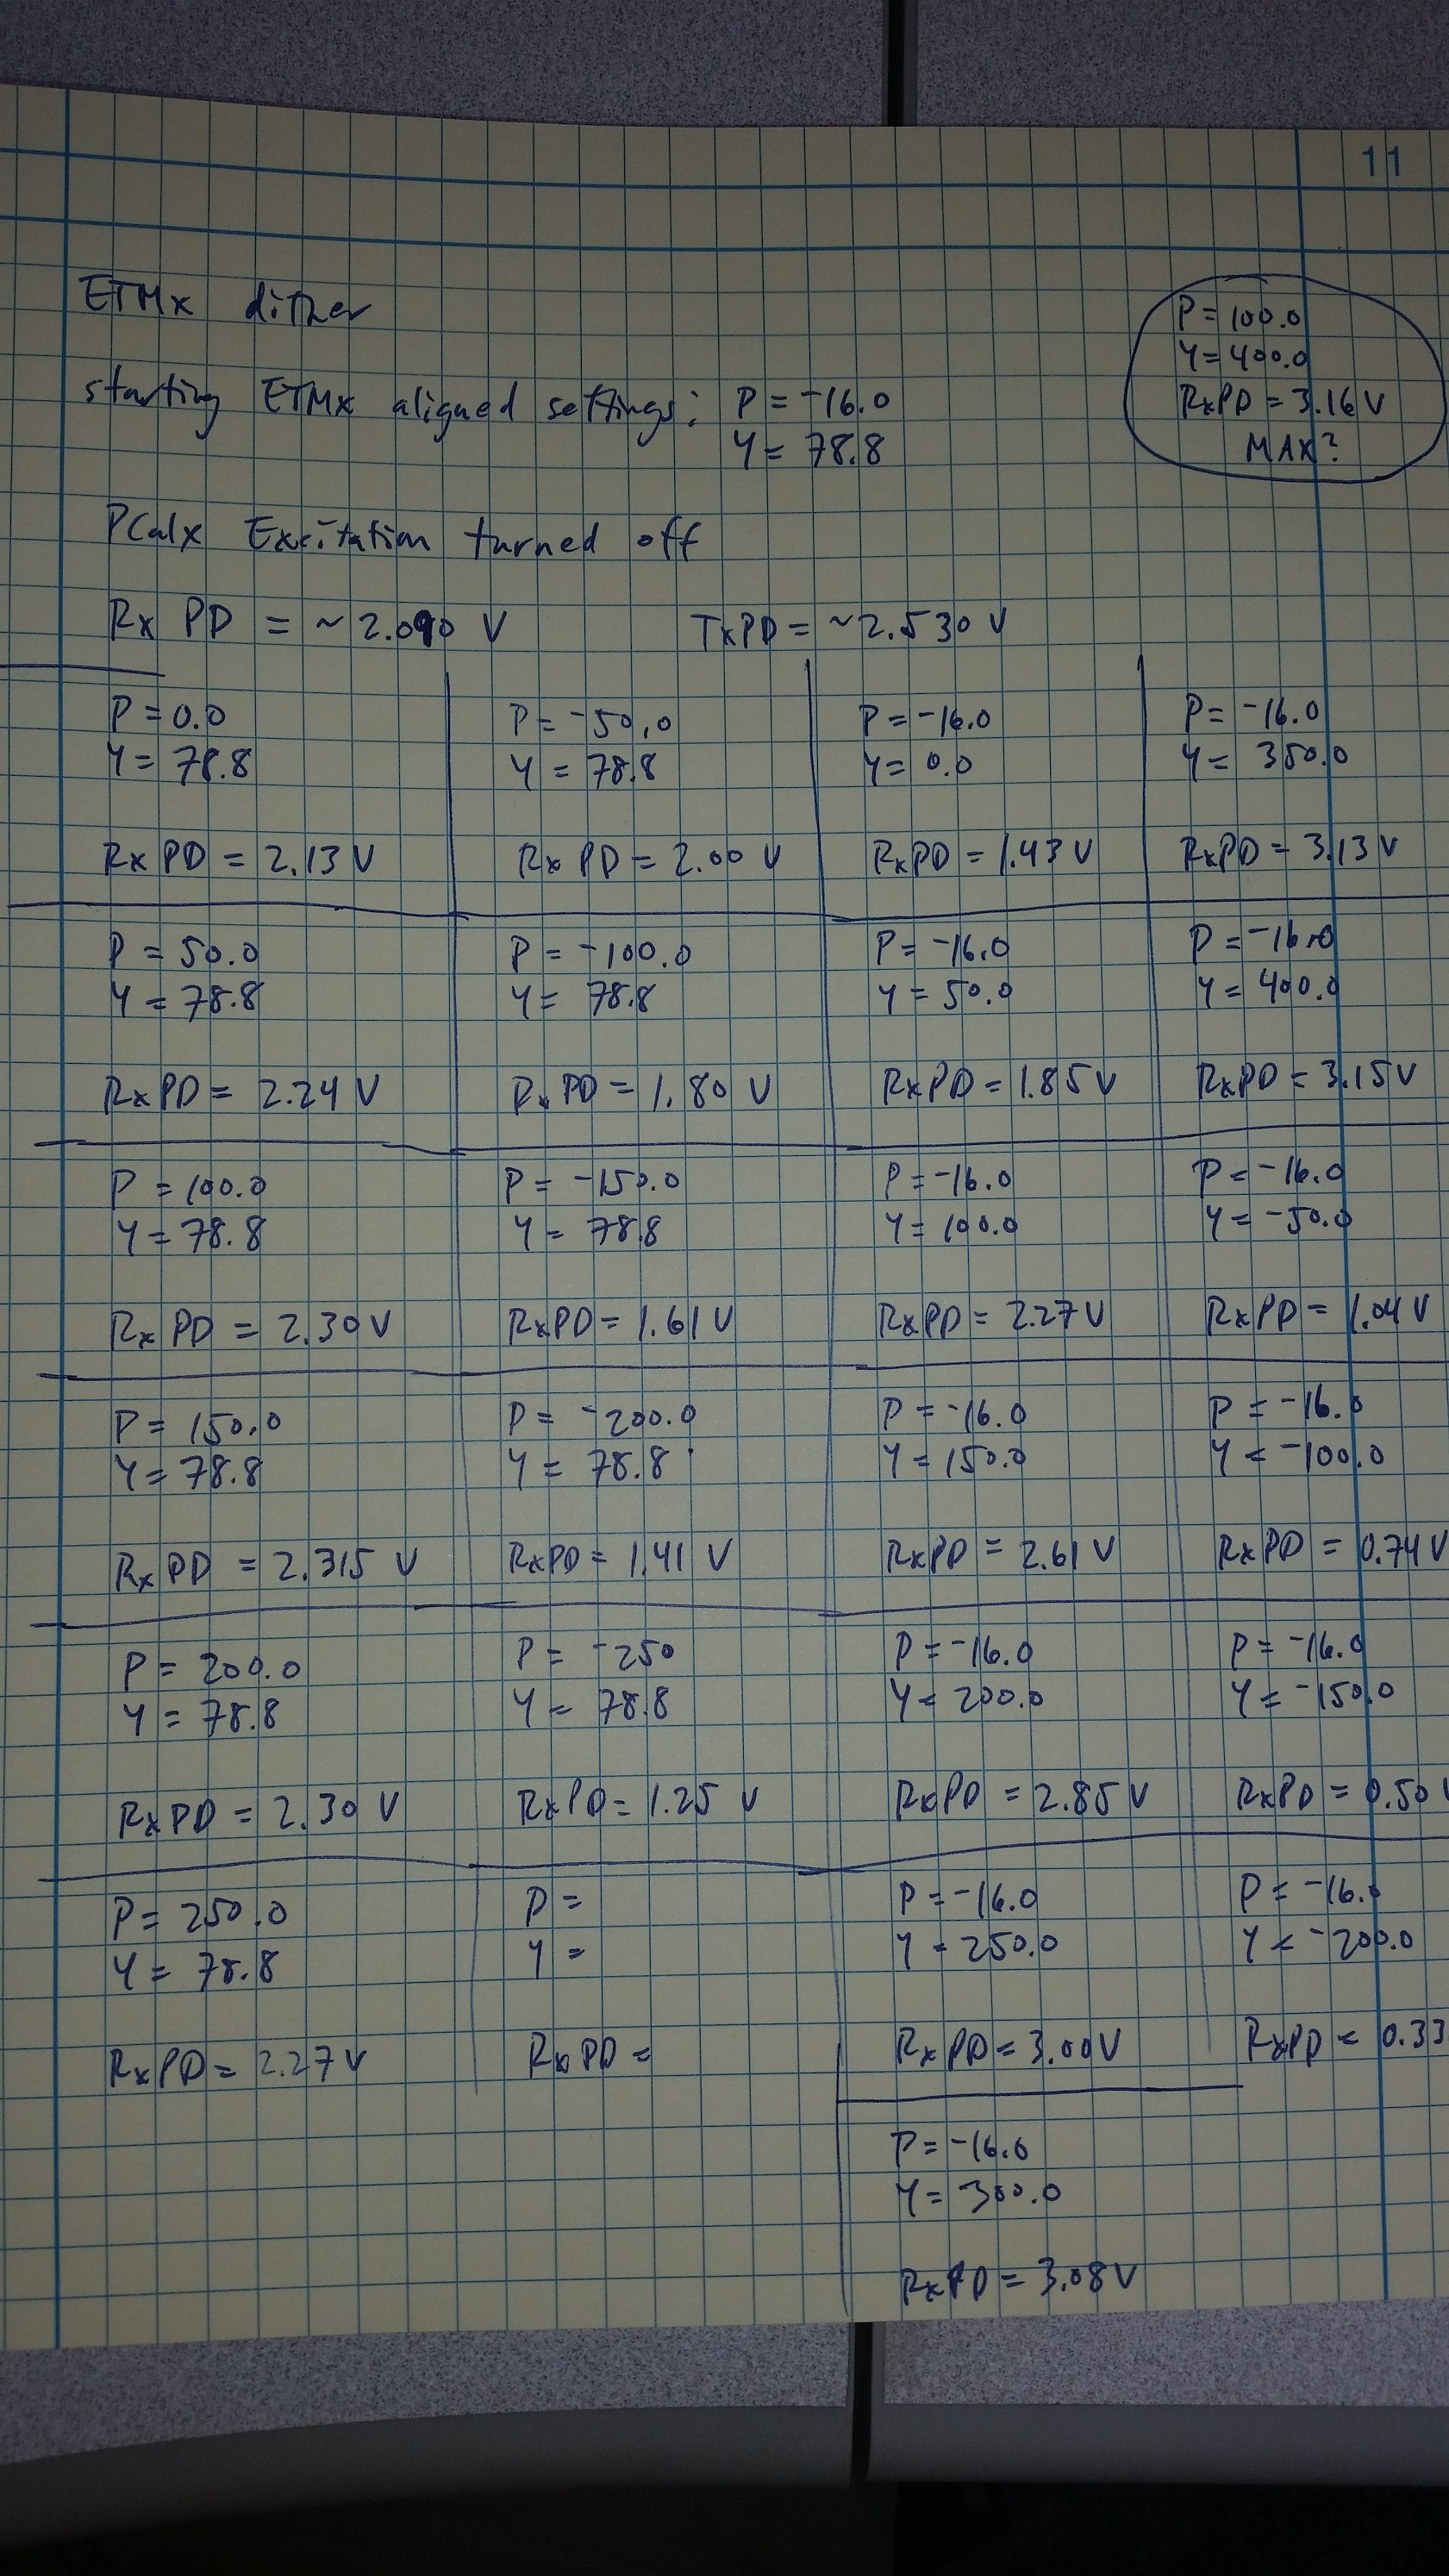 11
ETMx dither
P = 100.0
Y = 400.0
RxPD = 3.16 V
MAX?
starting ETMx aligned settings: P = -16.0
Y = 78.8
PCalx Excitation turned off
Rx PD = ~2.090 V TxPD = ~2.530 V
P = 0.0
Y = 78.8
Rx PD = 2.13 V
P = -50.0
Y = 78.8
Rx PD = 2.00 V
P = -16.0
Y = 0.0
RxPD = 1.43 V
P = -16.0
Y = 350.0
RxPD = 3.13 V
P = 50.0
Y = 78.8
RxPD = 2.24 V
P = -100.0
Y = 78.8
Rx PD = 1.80 V
P = -16.0
Y = 50.0
RxPD = 1.85 V
P = -16.0
Y = 400.0
RxPD = 3.15 V
P = 100.0
Y = 78.8
Rx PD = 2.30 V
P = -150.0
Y = 78.8
RxPD = 1.61 V
P = -16.0
Y = 100.0
RxPD = 2.27 V
P = -16.0
Y = -50.0
RxPD = 1.04 V
P = 150.0
Y = 78.8
Rx PD = 2.315 V
P = -200.0
Y = 78.8
RxPD = 1.41 V
P = -16.0
Y = 150.0
RxPD = 2.61 V
P = -16.0
Y = -100.0
RxPD = 0.74 V
P = 200.0
Y = 78.8
RxPD = 2.30 V
P = -250
Y = 78.8
RxPD = 1.25 V
P = -16.0
Y = 200.0
RxPD = 2.85 V
P = -16.0
Y = -150.0
RxPD = 0.50 V
P = 250.0
Y = 78.8
RxPD = 2.27 V
P =
Y =
RxPD =
P = -16.0
Y = 250.0
RxPD = 3.00 V
P = -16.0
Y = -200.0
RxPD = 0.33
P = -16.0
Y = 300.0
RxPD = 3.08 V